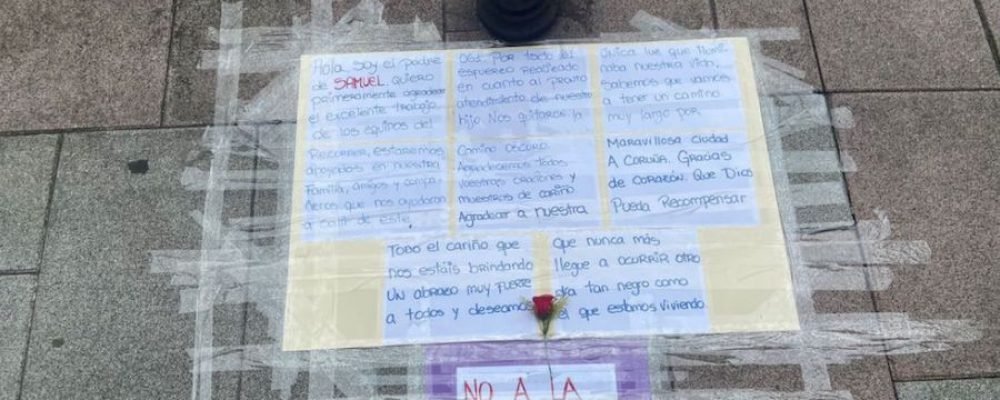 Hola soy el padre
de SAMUEL. QUIERO
primeramente agradecer
el excelente trabajo
de los equipos del
061. Por todo el
esfuerzo realizado
en cuanto al pronto
atendimiento de nuestro
hijo. Nos quitaron la
única luz que ilumi
naba nuestra vida,
Sabemos que vamos
a tener un camino
muy largo por
Recorrer, estaremos
apoyados en nuestra
Familia, amigos y compa
ñeros que nos ayudaran
a salir de este
Camino oscuro.
Agradecemos todas
vuestras oraciones y
muestras de cariño
Agradecer a nuestra
Maravillosa ciudad
A CORUÑA. Gracias
de CORAZÓN. Que Dios
Pueda Recompensar
TODO el cariño que
nos estáis brindando
UN ABRAZO MUY FUERTE
a todos y deseamos
que nunca más
llegue a OCURRIR OTRO
día tan negro como
el que estamos viviendo.
NO A LA